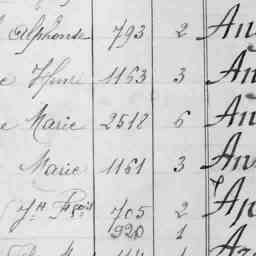 Alphonse 793 2 An
e Henri 1163 3 An
e Marie 2517 6 An
Marie 1161 3 An
Jh Fçois 705 2 Ap
920 1